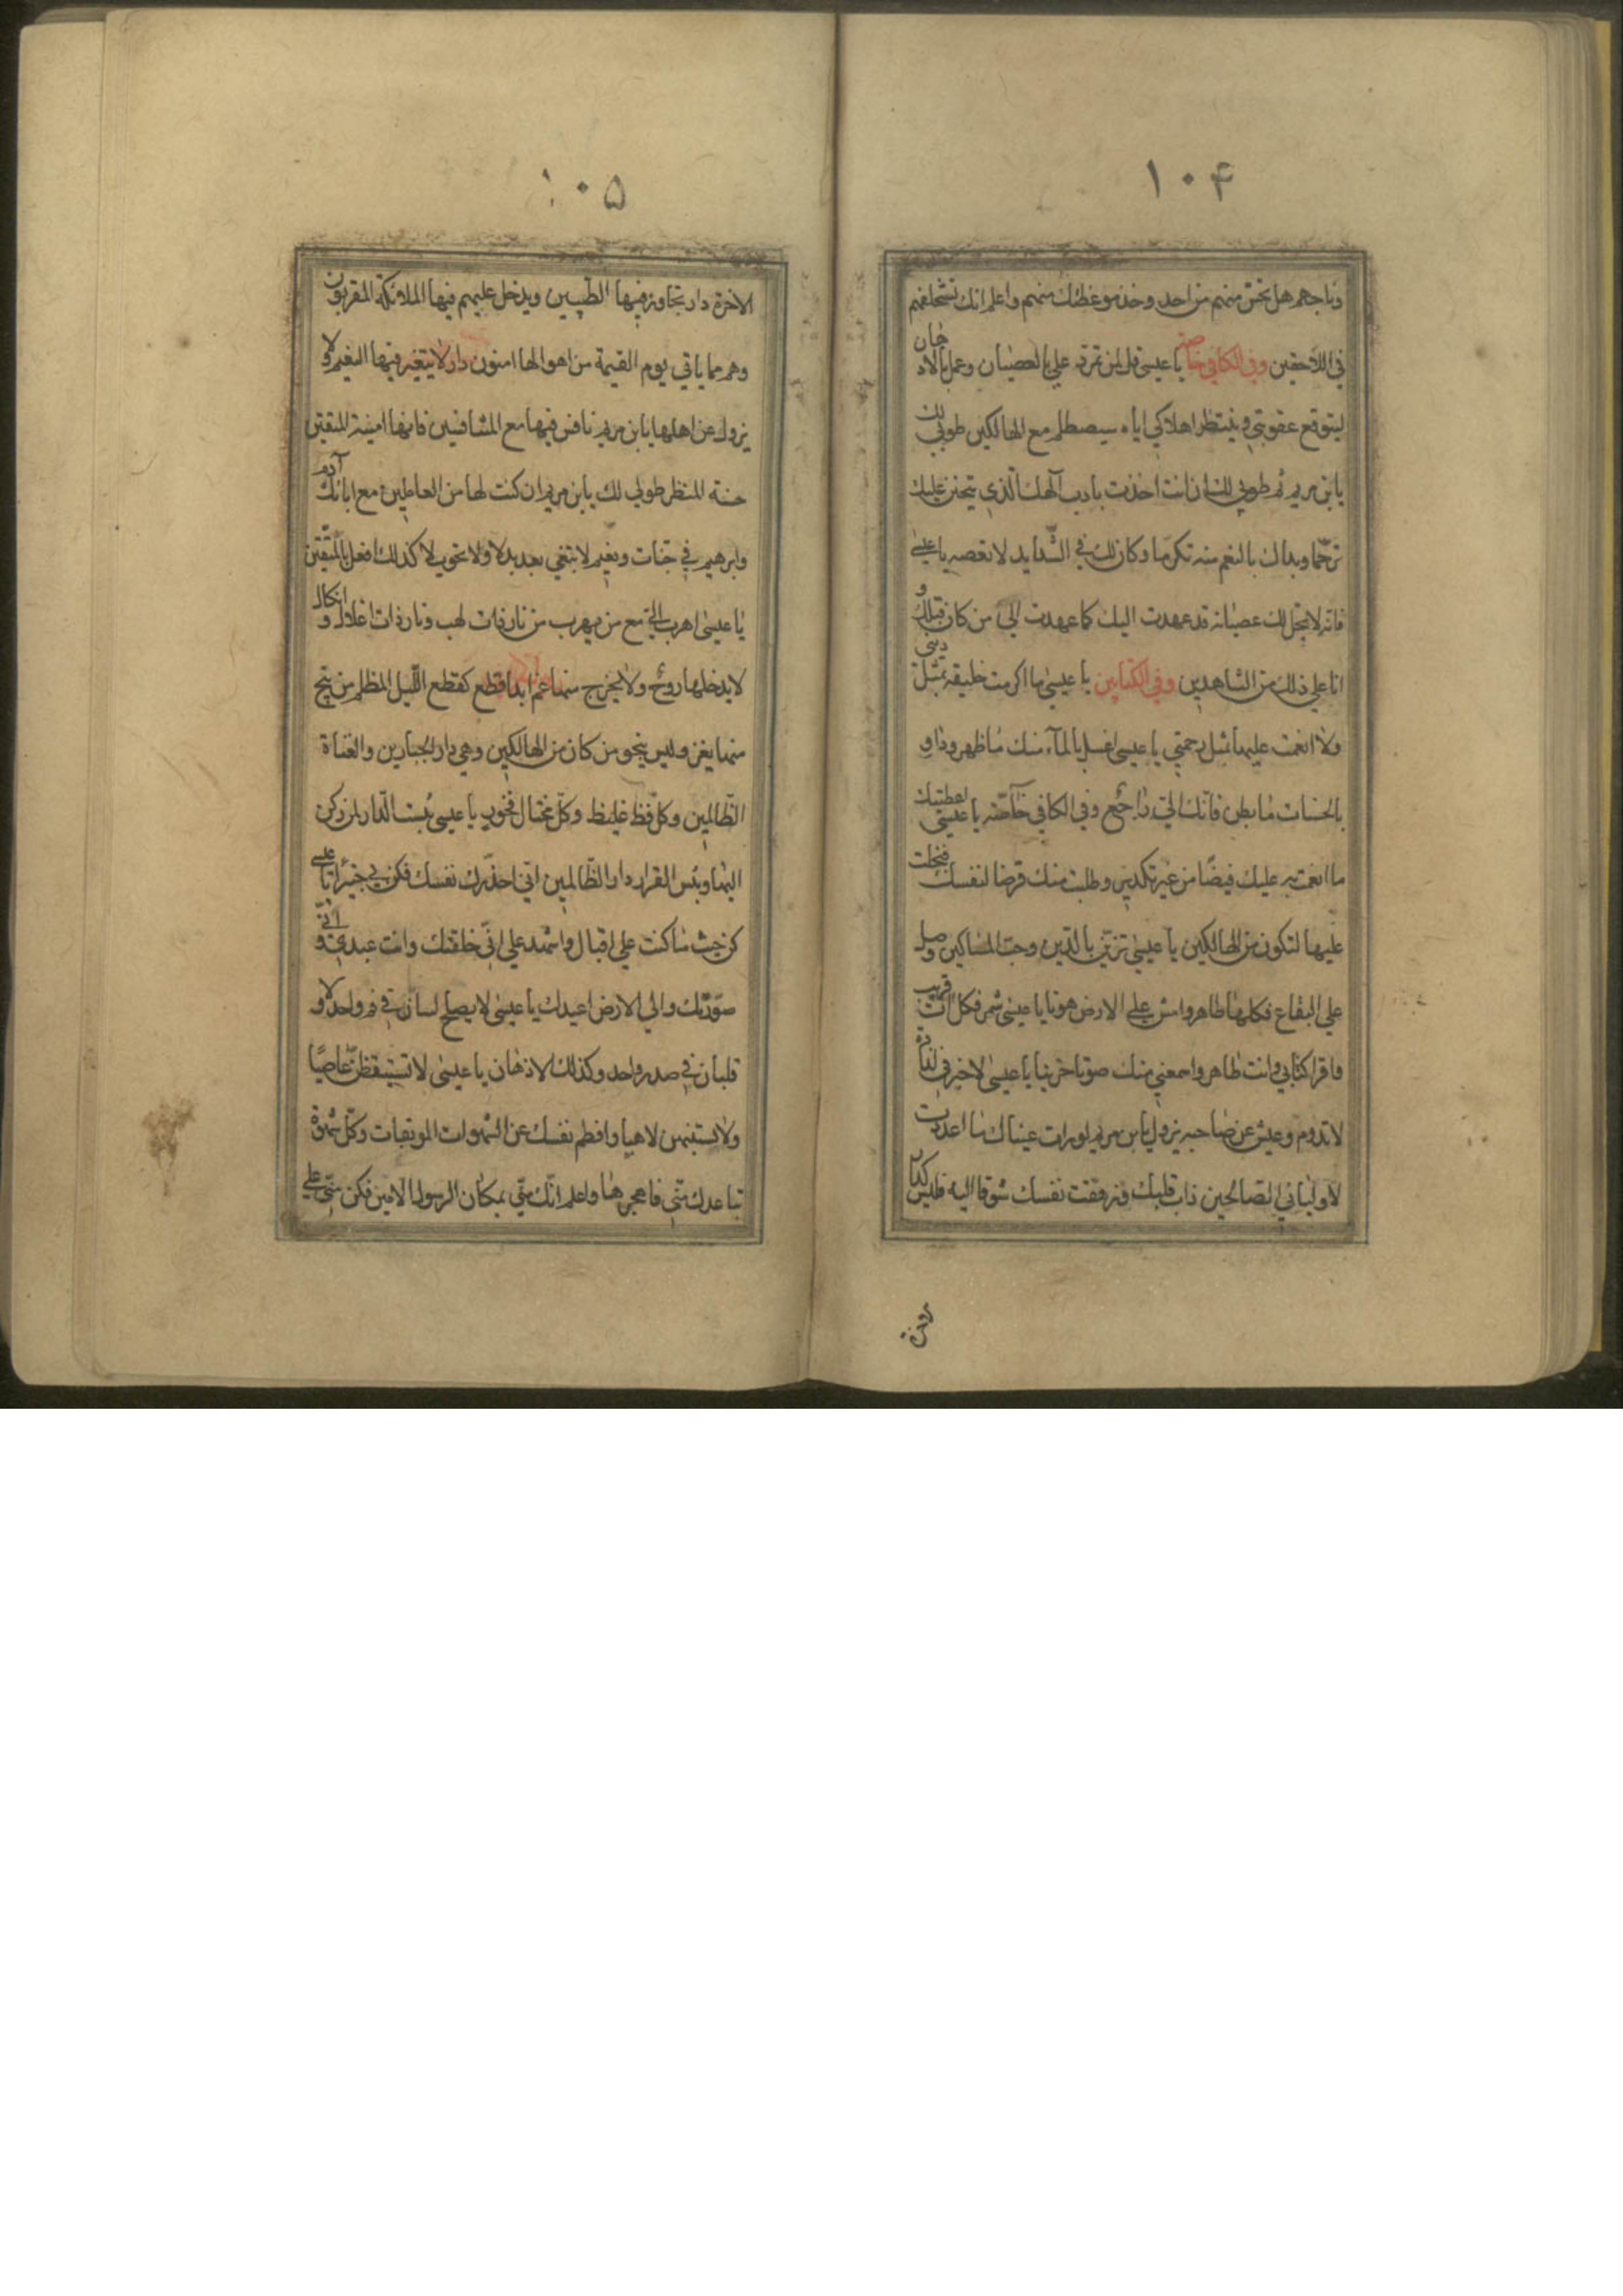 ۱۰۴
وناجهم هل تحس منهم من احد وخذ موعظتك منهم واعلم انك ستلحقهم
في اللاحقين وفي الكافي خاصة يا عيسى قل لمن تمرد علي بالعصيان وعمل بالادهان
ليتوقع عقوبتي وينتظر اهلاكي اياه سيصطلم مع الهالكين طوبى لك
يابن مريم ثم طوبى لك ان انت اخذت بادب آلهك الذي يتحنن عليك
ترحما وبداك بالنعم منه تكرما وكان لك في الشدايد لا تعصه يا عيسى
فانه لا يحل لك عصيانه قد عهدت اليك كما عهدت الى من كان قبلك و
انا على ذلك من الشاهدين وفي الكتابين يا عيسى ما اكرمت خليقة بمثل ديني
ولا انعمت عليها بمثل رحمتي يا عيسى اغسل بالمآء منك ما ظهر وداو
بالحسنات ما بطن فانك الي راجع وفي الكافي خاصة يا عيسى اعطيتك
ما انعمت به عليك فيضا من غير تكدير وطلبت منك قرضا لنفسك فبخلت
عليها لتكون من الهالكين يا عيسى تزين بالدين وحب المساكين وصل
على البقاع فكلها طاهر وامش على الارض هونا يا عيسى شمر فكل آت قريب
واقرا كتابي وانت طاهر واسمعني منك صوتا حزينا يا عيسى لا خير في لذاذة
لا تدوم وعيش عن صاحبه يزول يابن مريم لو رات عيناك ما اعددت
لاوليائي الصالحين ذاب قلبك وزهقت نفسك شوقا اليه فليس كدار
۱۰۵
الاخرة دار تجاور فيها الطيبين ويدخل عليهم فيها الملائكة المقربون
وهم مما ياتي يوم القيمة من اهوالها امنون دار لا يتغير فيها النعيم ولا
يزول عن اهلها يابن مريم نافس فيها مع المتنافسين فانها امنية المتمنين
حسنة المنظر طوبى لك يابن مريم ان كنت لها من العاملين مع ابائك آدم
وابرهيم في جنات ونعيم لا تبغي بها بدلا ولا تحويلا كذلك افعل بالمتقين
يا عيسى اهرب الي مع من يهرب من نار ذات لهب ونار ذات اغلال وانكال
لا يدخلها روح ولا يخرج منها غم ابدا قطع كقطع الليل المظلم من ينج
منها يفز وليس ينجو من كان من الهالكين وهي دار الجبارين والعتاة
الظالمين وكل فظ غليظ وكل مختال فخور يا عيسى بئست الدار لمن ركن
اليها وبئس القرار دار الظالمين اني احذرك نفسك فكن بي خبيرا يا عيسى
كن حيث ما كنت على اقبال واشهد علي اني خلقتك وانت عبدي واني
صورتك والى الارض اعيدك يا عيسى لا يصلح لسانان في فم واحد ولا
قلبان في صدر واحد وكذلك الاذهان يا عيسى لا تستيقظن عاصيا
ولا تستنبهن لاهيا وافطم نفسك عن الشهوات الموبقات وكل شهوة
تباعدك مني فاهجرها واعلم انك مني بمكان الرسول الامين فكن مني على